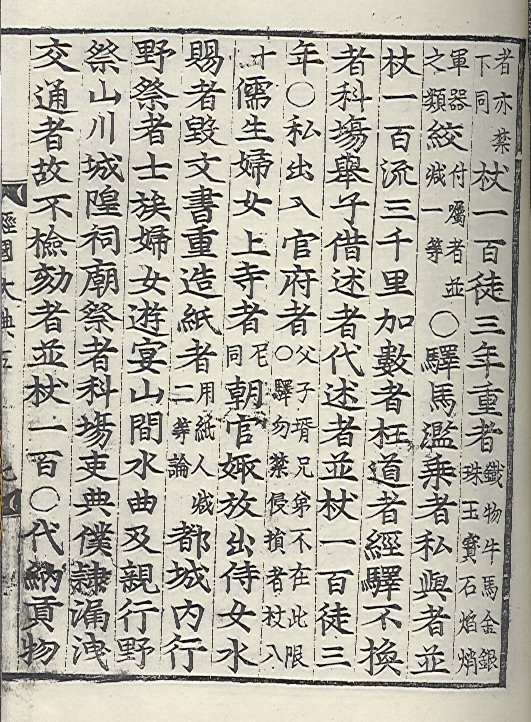 者亦禁下同杖一百徒三年重者鐵物牛馬金銀珠玉寶石焰焇
軍器之類絞付囑者並減一等○驛馬濫乘者私與者並
杖一百流三千里加數者枉道者經驛不換
者科場舉子借述者代述者並杖一百徒三
年○私出入官府者父子壻兄弟不在此限○驛勿禁侵損者杖八
十儒生婦女上寺者尼同朝官娵放出侍女水
賜者毀文書重造紙者用紙人減二等論都城內行
野祭者士族婦女遊宴山間水曲及親行野
祭山川城隍祠廟祭者科場吏典僕隸漏洩
交通者故不檢劾者並杖一百○代納貢物
經國大典五